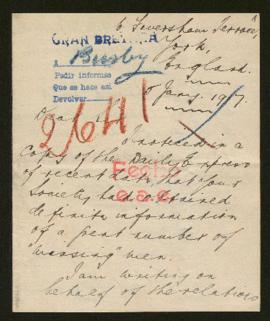 6 Feversham Terrace,
York,
England.
GRAN BRETAÑA
A Busby
Pedir informes
Que se hace así
Devolver
Jany. 1917.
Dear
2641
I noticed in a
copy of the Daily Express
of recent date that your
Fecho
Society had obtained
e.s.e.
definite information
of a great number of
"missing" men.
I am writing on
behalf of the relations